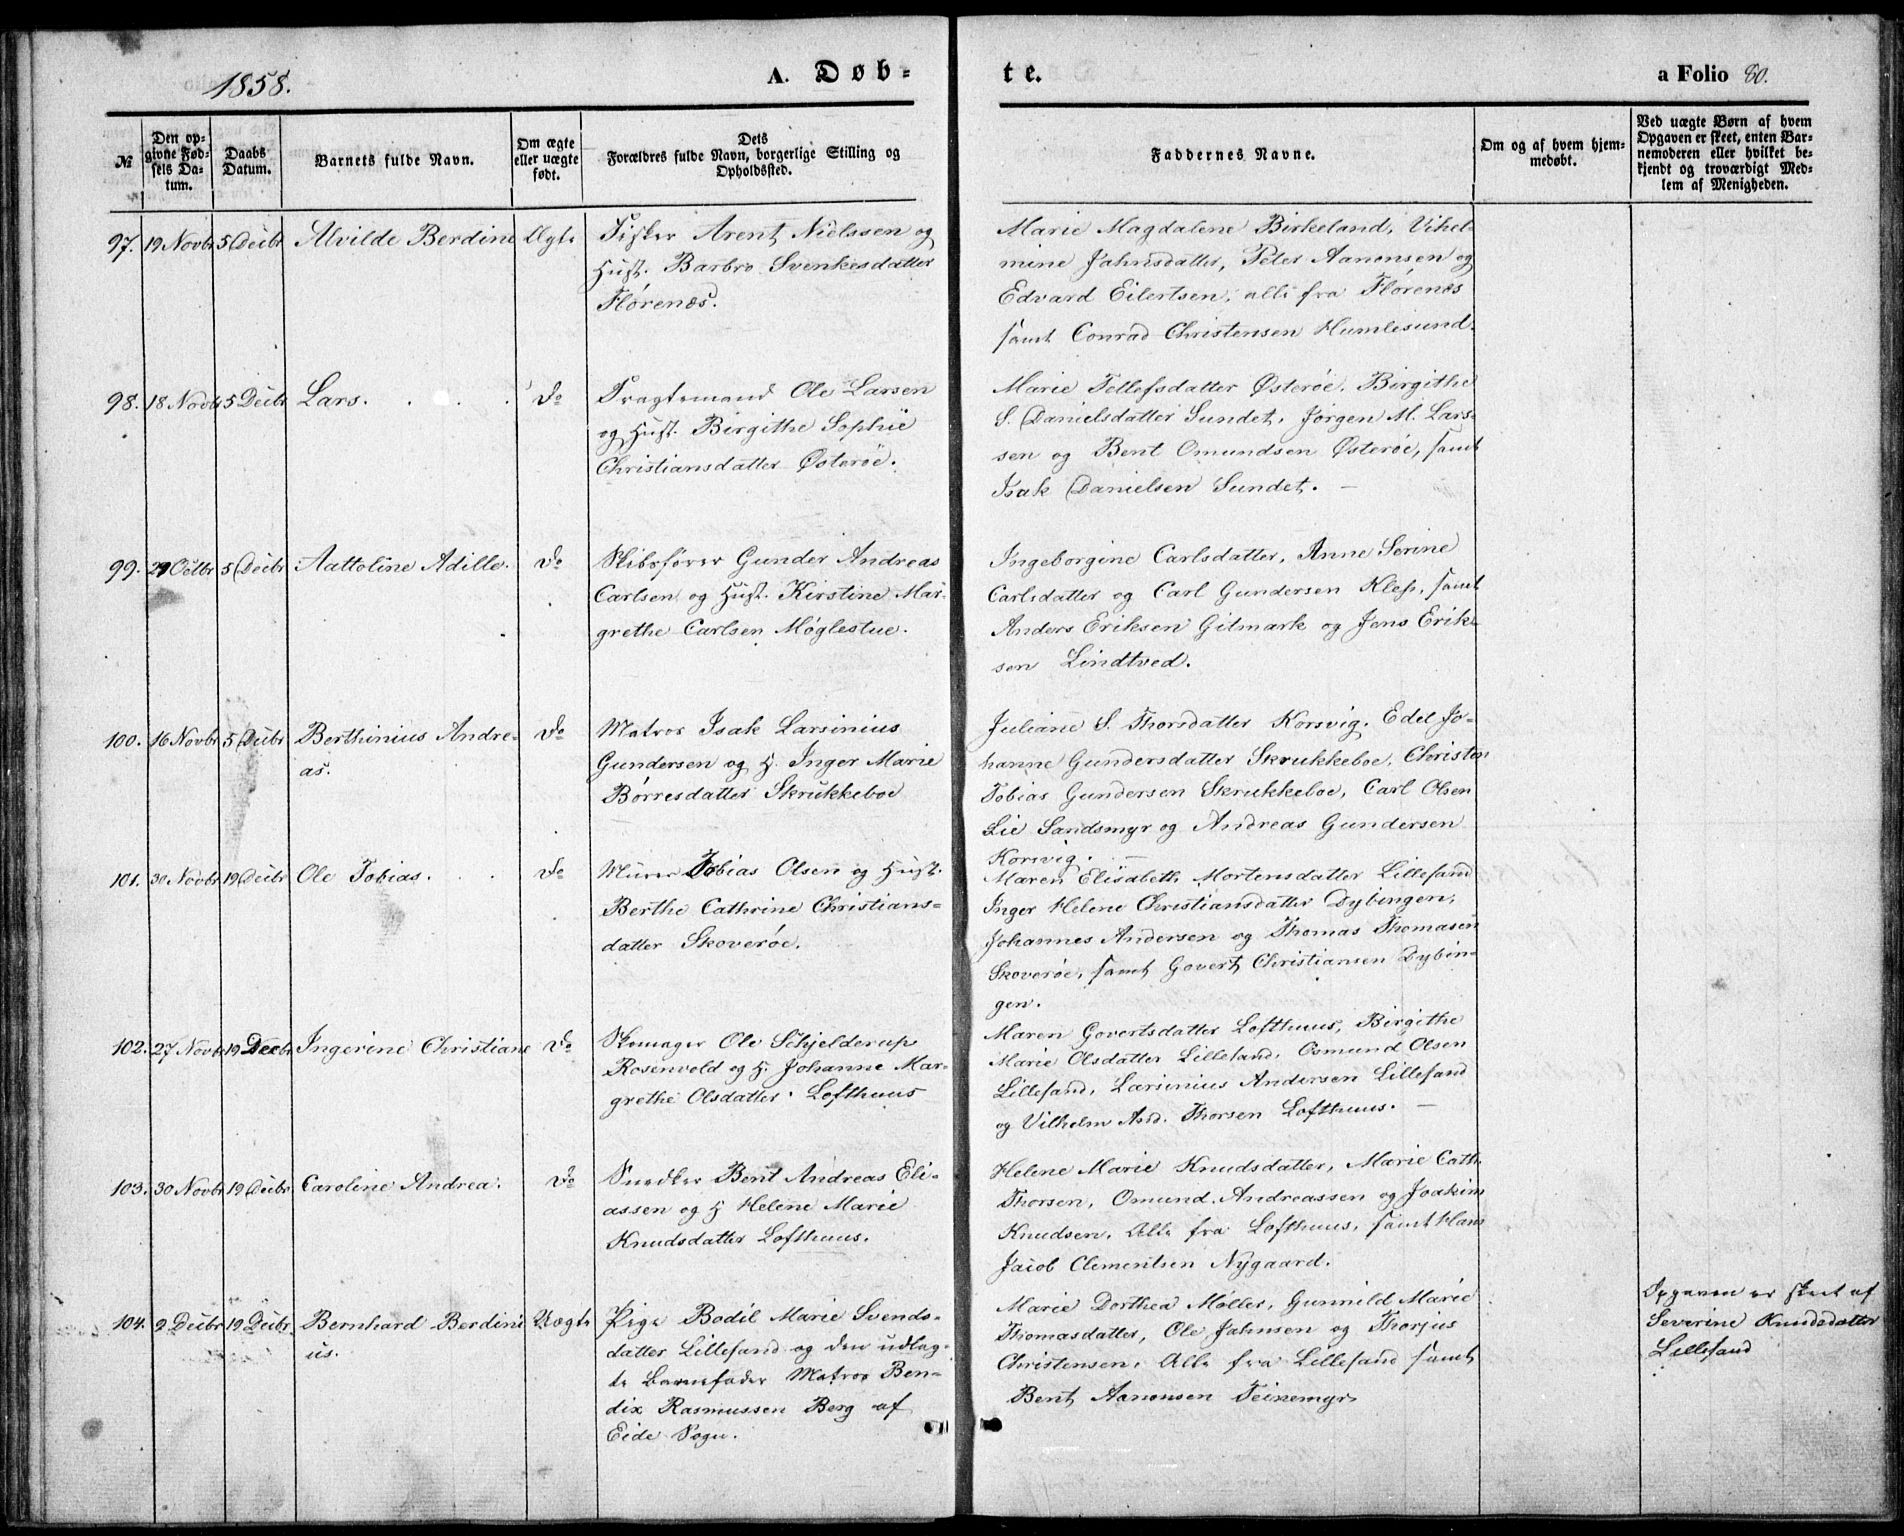 1858.
A. Døb-
te.
a Folio 80.
№
Den op-
givne Fød-
sels Da-
tum.
Daabs
Datum.
Barnets fulde Navn.
Om ægte
eller uægte
født.
Dets
Forældres fulde Navn, borgerlige Stilling og
Opholdssted.
Faddernes Navne.
Om og af hvem hjem-
medøbt.
Ved uægte Børn af hvem
Opgaven er skeet, enten Bar-
nemoderen eller hvilket be-
kjendt og troværdigt Med-
lem af Menigheden.
97. 19 Novbr 5 Decbr Alvilde Berdine Ægte
Fisker Arent Nielssen og
Hust. Barbro Svenkesdatter
Flørenæs.
Marie Magdalene Birkeland, Vihel-
mine Jahnsdatter, Peter Aanonsen og
Edvard Eilertsen, alle fra Flørenæs
samt Conrad Christensen Humlesund.
98. 18 Novbr 5 Decbr Lars. Do
Fragtemand Ole Larsen
og Hust. Birgithe Sophie
Christiansdatter Østerøe.
Marie Tellefsdatter Østerøe, Birgithe
S. Danielsdatter Sundet, Jørgen M. Lars-
sen og Bent Omundsen Østerøe, samt
Isak Danielsen Sundet. —
99. 29 Octbr 5 Decbr Aattoline Adille. Do
Skibsfører Gunder Andreas
Carlsen og Hust. Kirstine Mar-
grethe Carlsen Møglestue.
Ingeborgine Carlsdatter, Anne Serine
Carlsdatter og Carl Gundersen Klep, samt
Anders Eriksen Gitmark og Jens Erik-
sen Lindtved.
100. 16 Novbr 5 Decbr Berthinius Andre-
as. Do
Matros Isak Larsinius
Gundersen og H. Inger Marie
Børresdatter Skrukkeboe
Juliane S. Thorsdatter Korsvig, Edel Jo-
hanne Gundersdatter Skrukkeboe, Christen
Tobias Gundersen Skrukkeboe, Carl Olsen
Lie Sandsmyr og Andreas Gundersen
Korsvig. —
101. 30 Novbr 19 Decbr Ole Tobias. Do
Murer Tobias Olsen og Hust.
Berthe Cathrine Christians-
datter Skoverøe.
Maren Elisabeth Mortensdatter Lillesand
Inger Helene Christiansdatter Dybingen,
Johannes Andersen og Thomas Thomasen
Skoverøe, samt Govert Christiansen Dybin-
gen.
102. 27 Novbr 19 Decbr Ingerine Christiane Do
Skomager Ole Schjelderup
Rosenvold og H. Johanne Mar-
grethe Olsdatter. Lofthuus
Maren Govertsdatter Lofthuus, Birgithe
Marie Olsdatter Lillesand, Osmund Olsen
Lillesand, Larsinius Andersen Lillesand
og Vilhelm And. Thorsen Lofthuus. —
103. 30 Novbr 19 Decbr Caroline Andrea. Do
Snedker Bent Andreas Eli-
assen og H Helene Marie
Knudsdatter Lofthuus.
Helene Marie Knudsdatter, Marie Cath.
Thorsen, Omund Andreassen og Joakim
Knudsen, Alle fra Lofthuus, samt Hans
Jacob Clementsen Nygaard.
104. 9 Decbr 19 Decbr Bernhard Berdini-
us. Uægte
Pige Bodil Marie Svends-
datter Lillesand og den udlag-
te Barnefader Matros Ben-
dix Rasmussen Berg af
Eide Sogn.
Marie Dorthea Møller, Gunnild Marie
Thomasdatter, Ole Jahnsen og Thorjus
Christensen, Alle fra Lillesand samt
Bent Aanonsen Teinemyr
Opgaven er skeet af
Severine Knudsdatter
Lillesand